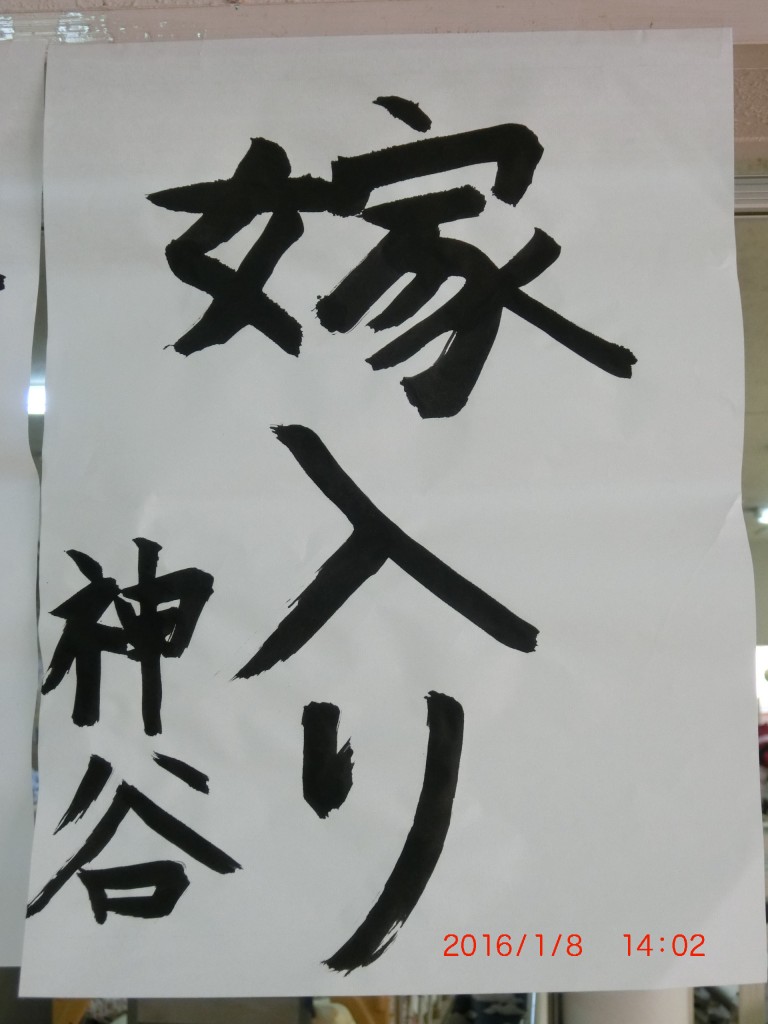 嫁入り
神谷
2016/1/8 14:02